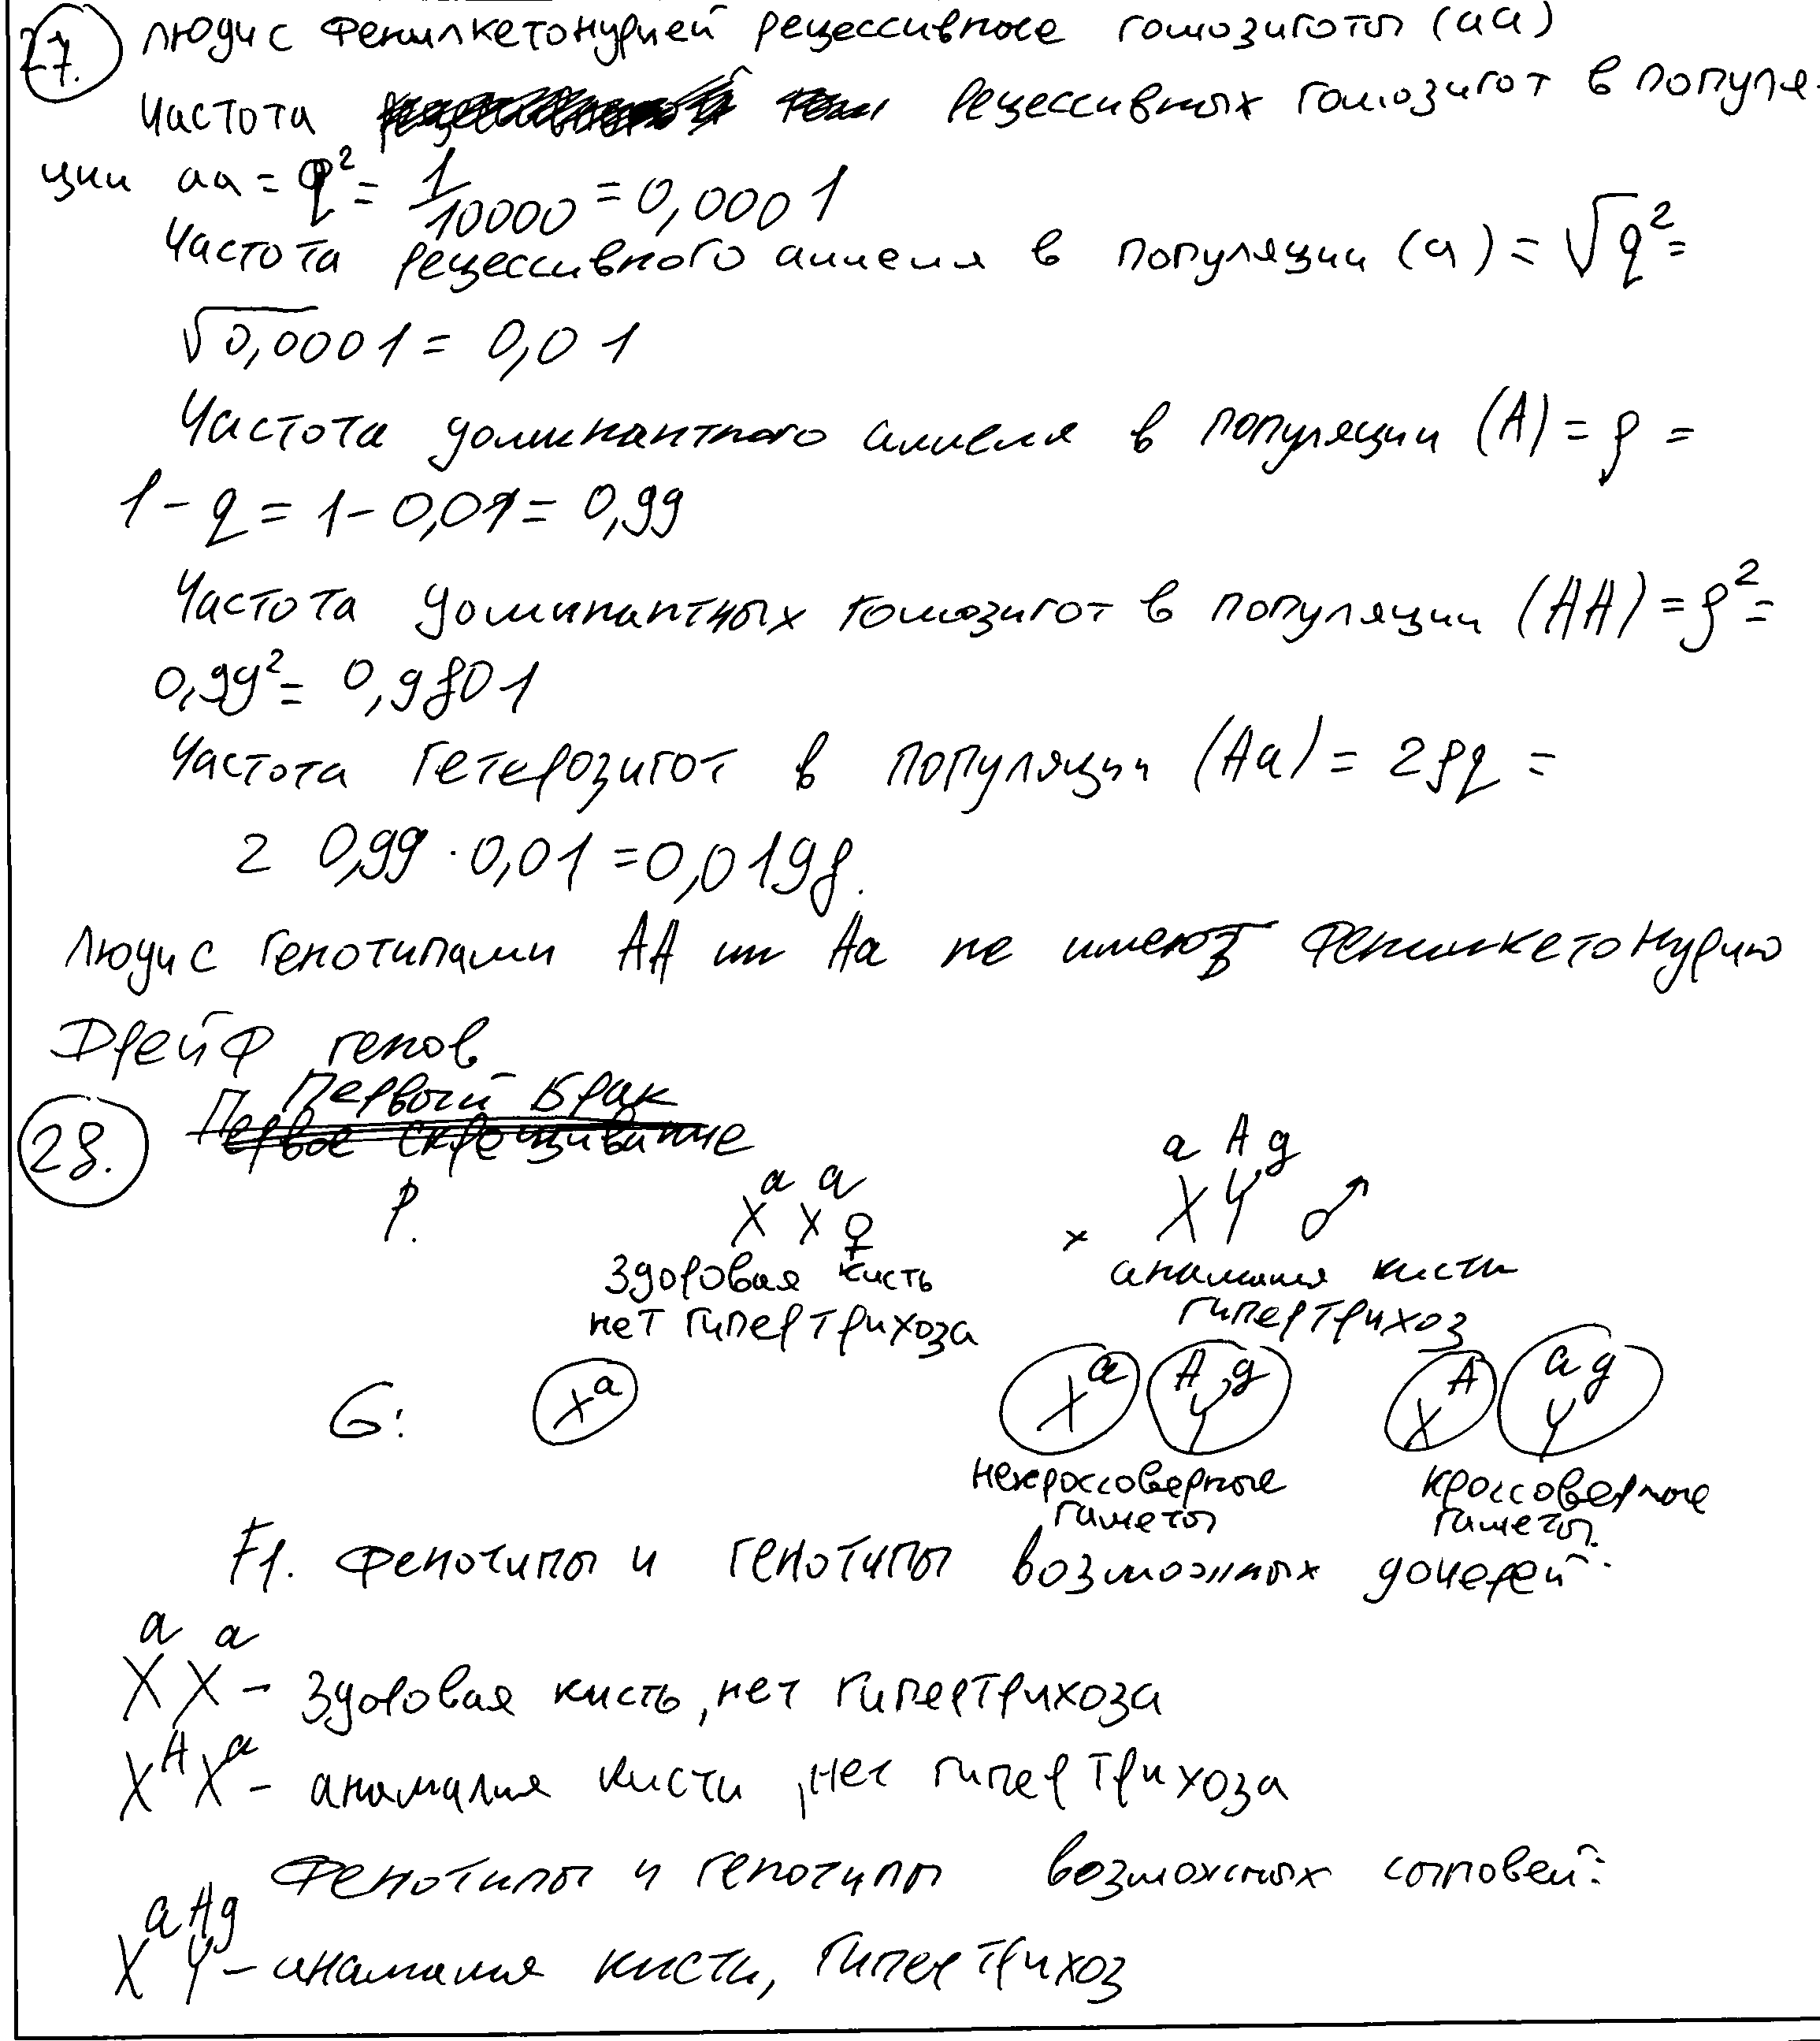 27. Люди с фенилкетонурией рецессивные гомозиготы (аа)
Частота рецессивных гомозигот в популя-
ции аа = q² = 1/10000 = 0,0001
Частота рецессивного аллеля в популяции (а) = √q² =
√0,0001 = 0,01
Частота доминантного аллеля в популяции (А) = p =
1 - q = 1 - 0,01 = 0,99
Частота доминантных гомозигот в популяции (АА) = p² =
0,99² = 0,9801
Частота гетерозигот в популяции (Аа) = 2pq =
2 0,99 · 0,01 = 0,0198.
Люди с генотипами АА и Аа не имеют фенилкетонурию
Дрейф генов
Первый брак
28. Первое скрещивание
P. XᵃXᵃ ♀ × XᵃYᴬg ♂
здоровая кисть аномалия кисти
нет гипертрихоза гипертрихоз
G: Xᵃ Xᵃ Yᴬg Xᴬ Yᵃg
некроссоверные кроссоверные
гаметы гаметы.
F1. Фенотипы и генотипы возможных дочерей:
XᵃXᵃ - здоровая кисть, нет гипертрихоза
XᴬXᵃ - анамалия кисти, нет гипертрихоза
Фенотипы и генотипы возможных сыновей:
XᵃYᴬg - анамалия кисти, гипертрихоз